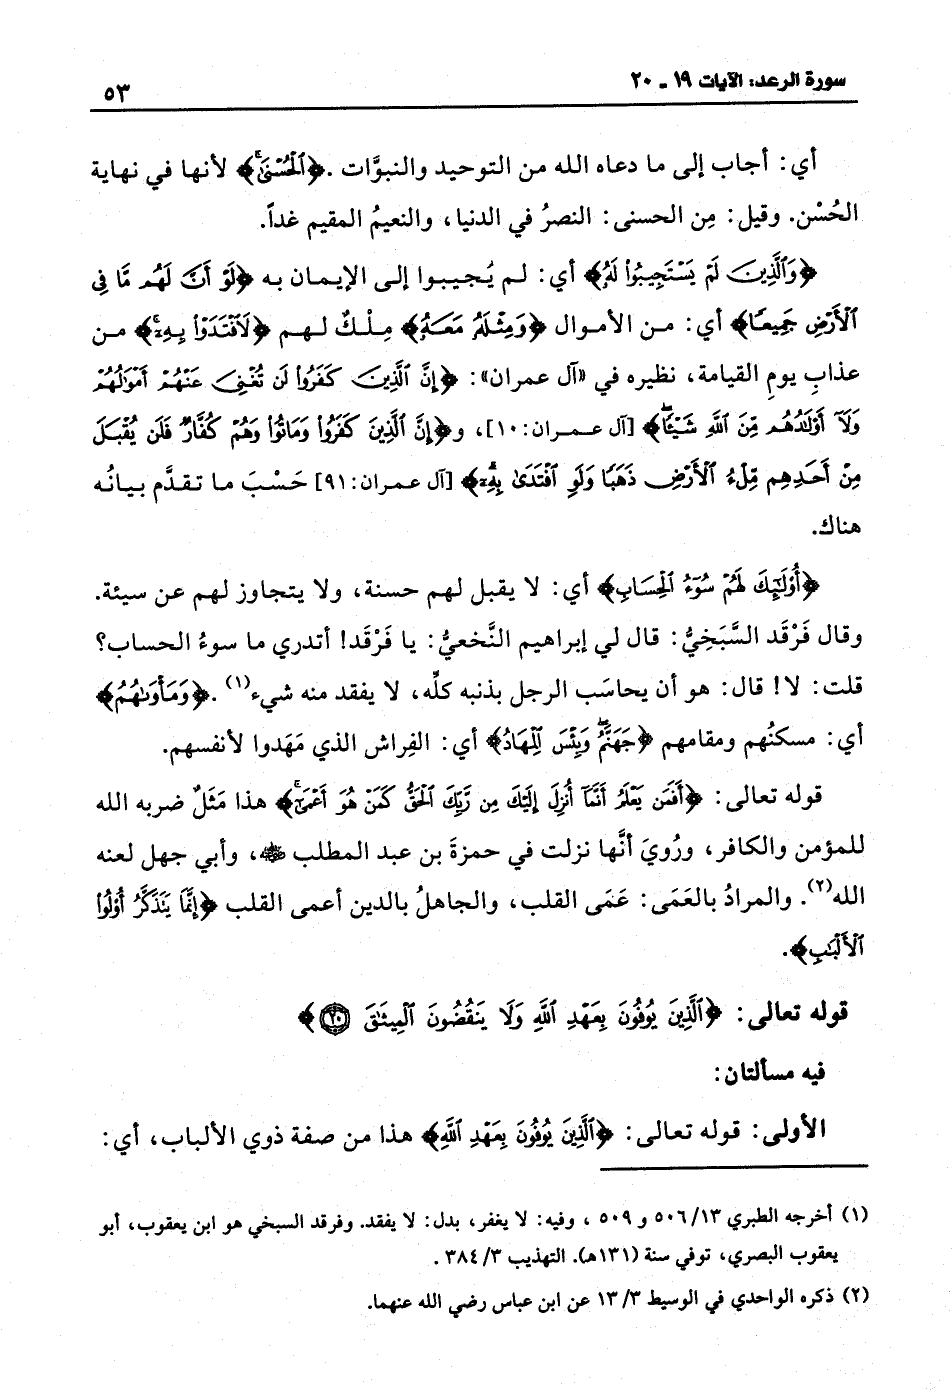 سورة الرعد: الآيات ١٩ ـ ٢٠
٥٣
أي: أجاب إلى ما دعاه الله من التوحيد والنبوَّات. ﴿ٱلْحُسْنَىٰ﴾ لأنها في نهاية
الحُسْن. وقيل: مِن الحسنى: النصرُ في الدنيا، والنعيمُ المقيم غداً.
﴿وَٱلَّذِينَ لَمْ يَسْتَجِيبُوا۟ لَهُۥ﴾ أي: لم يُجيبوا إلى الإيمان به ﴿لَوْ أَنَّ لَهُم مَّا فِى
ٱلْأَرْضِ جَمِيعًا﴾ أي: من الأموال ﴿وَمِثْلَهُۥ مَعَهُۥ﴾ مِلْكٌ لهم ﴿لَٱفْتَدَوْا۟ بِهِۦٓ﴾ من
عذابِ يومِ القيامة، نظيره في «آل عمران»: ﴿إِنَّ ٱلَّذِينَ كَفَرُوا۟ لَن تُغْنِىَ عَنْهُمْ أَمْوَٰلُهُمْ
وَلَآ أَوْلَٰدُهُم مِّنَ ٱللَّهِ شَيْـًٔا﴾ [آل عمران: ١٠]، و﴿إِنَّ ٱلَّذِينَ كَفَرُوا۟ وَمَاتُوا۟ وَهُمْ كُفَّارٌ فَلَن يُقْبَلَ
مِنْ أَحَدِهِم مِّلْءُ ٱلْأَرْضِ ذَهَبًا وَلَوِ ٱفْتَدَىٰ بِهِۦٓ﴾ [آل عمران: ٩١] حَسْبَ ما تقدَّم بيانُه
هناك.
﴿أُو۟لَٰٓئِكَ لَهُمْ سُوٓءُ ٱلْحِسَابِ﴾ أي: لا يقبل لهم حسنة، ولا يتجاوز لهم عن سيئة.
وقال فَرْقَد السَّبَخِيُّ: قال لي إبراهيم النَّخعيُّ: يا فَرْقَد! أتدري ما سوءُ الحساب؟
قلت: لا! قال: هو أن يحاسَب الرجل بذنبه كلِّه، لا يفقد منه شيء(١). ﴿وَمَأْوَىٰهُمْ﴾
أي: مسكنُهم ومقامهم ﴿جَهَنَّمُ وَبِئْسَ ٱلْمِهَادُ﴾ أي: الفِراش الذي مَهَدوا لأنفسهم.
قوله تعالى: ﴿أَفَمَن يَعْلَمُ أَنَّمَآ أُنزِلَ إِلَيْكَ مِن رَّبِّكَ ٱلْحَقُّ كَمَنْ هُوَ أَعْمَىٰٓ﴾ هذا مَثَلٌ ضربه الله
للمؤمن والكافر، ورُويَ أنَّها نزلت في حمزةَ بن عبد المطلب ﷺ، وأبي جهل لعنه
الله(٢). والمرادُ بالعَمَى: عَمَى القلب، والجاهلُ بالدين أعمى القلب ﴿إِنَّمَا يَتَذَكَّرُ أُو۟لُوا۟
ٱلْأَلْبَٰبِ﴾.
قوله تعالى: ﴿ٱلَّذِينَ يُوفُونَ بِعَهْدِ ٱللَّهِ وَلَا يَنقُضُونَ ٱلْمِيثَٰقَ ٢٠﴾
فيه مسألتان:
الأولى: قوله تعالى: ﴿ٱلَّذِينَ يُوفُونَ بِعَهْدِ ٱللَّهِ﴾ هذا من صفة ذوي الألباب، أي:
(١) أخرجه الطبري ١٣/ ٥٠٦ و ٥٠٩ ، وفيه: لا يغفر، بدل: لا يفقد. وفرقد السبخي هو ابن يعقوب، أبو
يعقوب البصري، توفي سنة (١٣١هـ). التهذيب ٣/ ٣٨٤ .
(٢) ذكره الواحدي في الوسيط ٣/ ١٣ عن ابن عباس رضي الله عنهما.